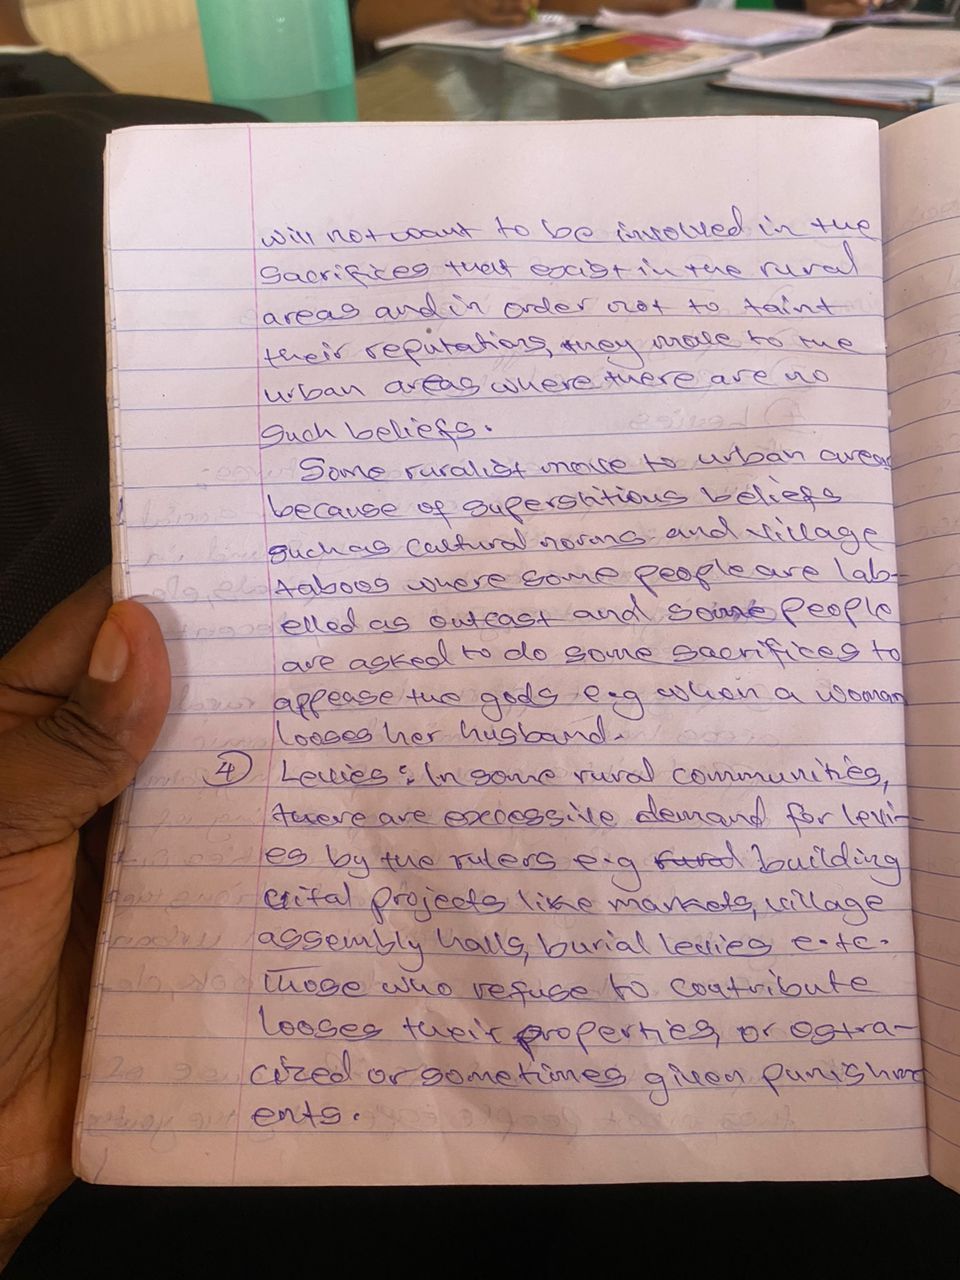 will not want to be involved in the
sacrifices that exist in the rural
areas and in order not to taint
their reputations, they move to the
urban areas where there are no
such beliefs.
Some ruralist move to urban areas
because of superstitious beliefs
such as cultural norms and village
taboos where some people are lab-
elled as outcast and some people
are asked to do some sacrifices to
appease the gods e.g when a woman
looses her husband.
④ Levies: In some rural communities,
there are excessive demand for levi-
es by the rulers e.g rural building
projects like markets, village
assembly halls, burial levies e.t.c.
Those who refuse to contribute
looses their properties, or ostra-
cized or sometimes given punishm
ents.